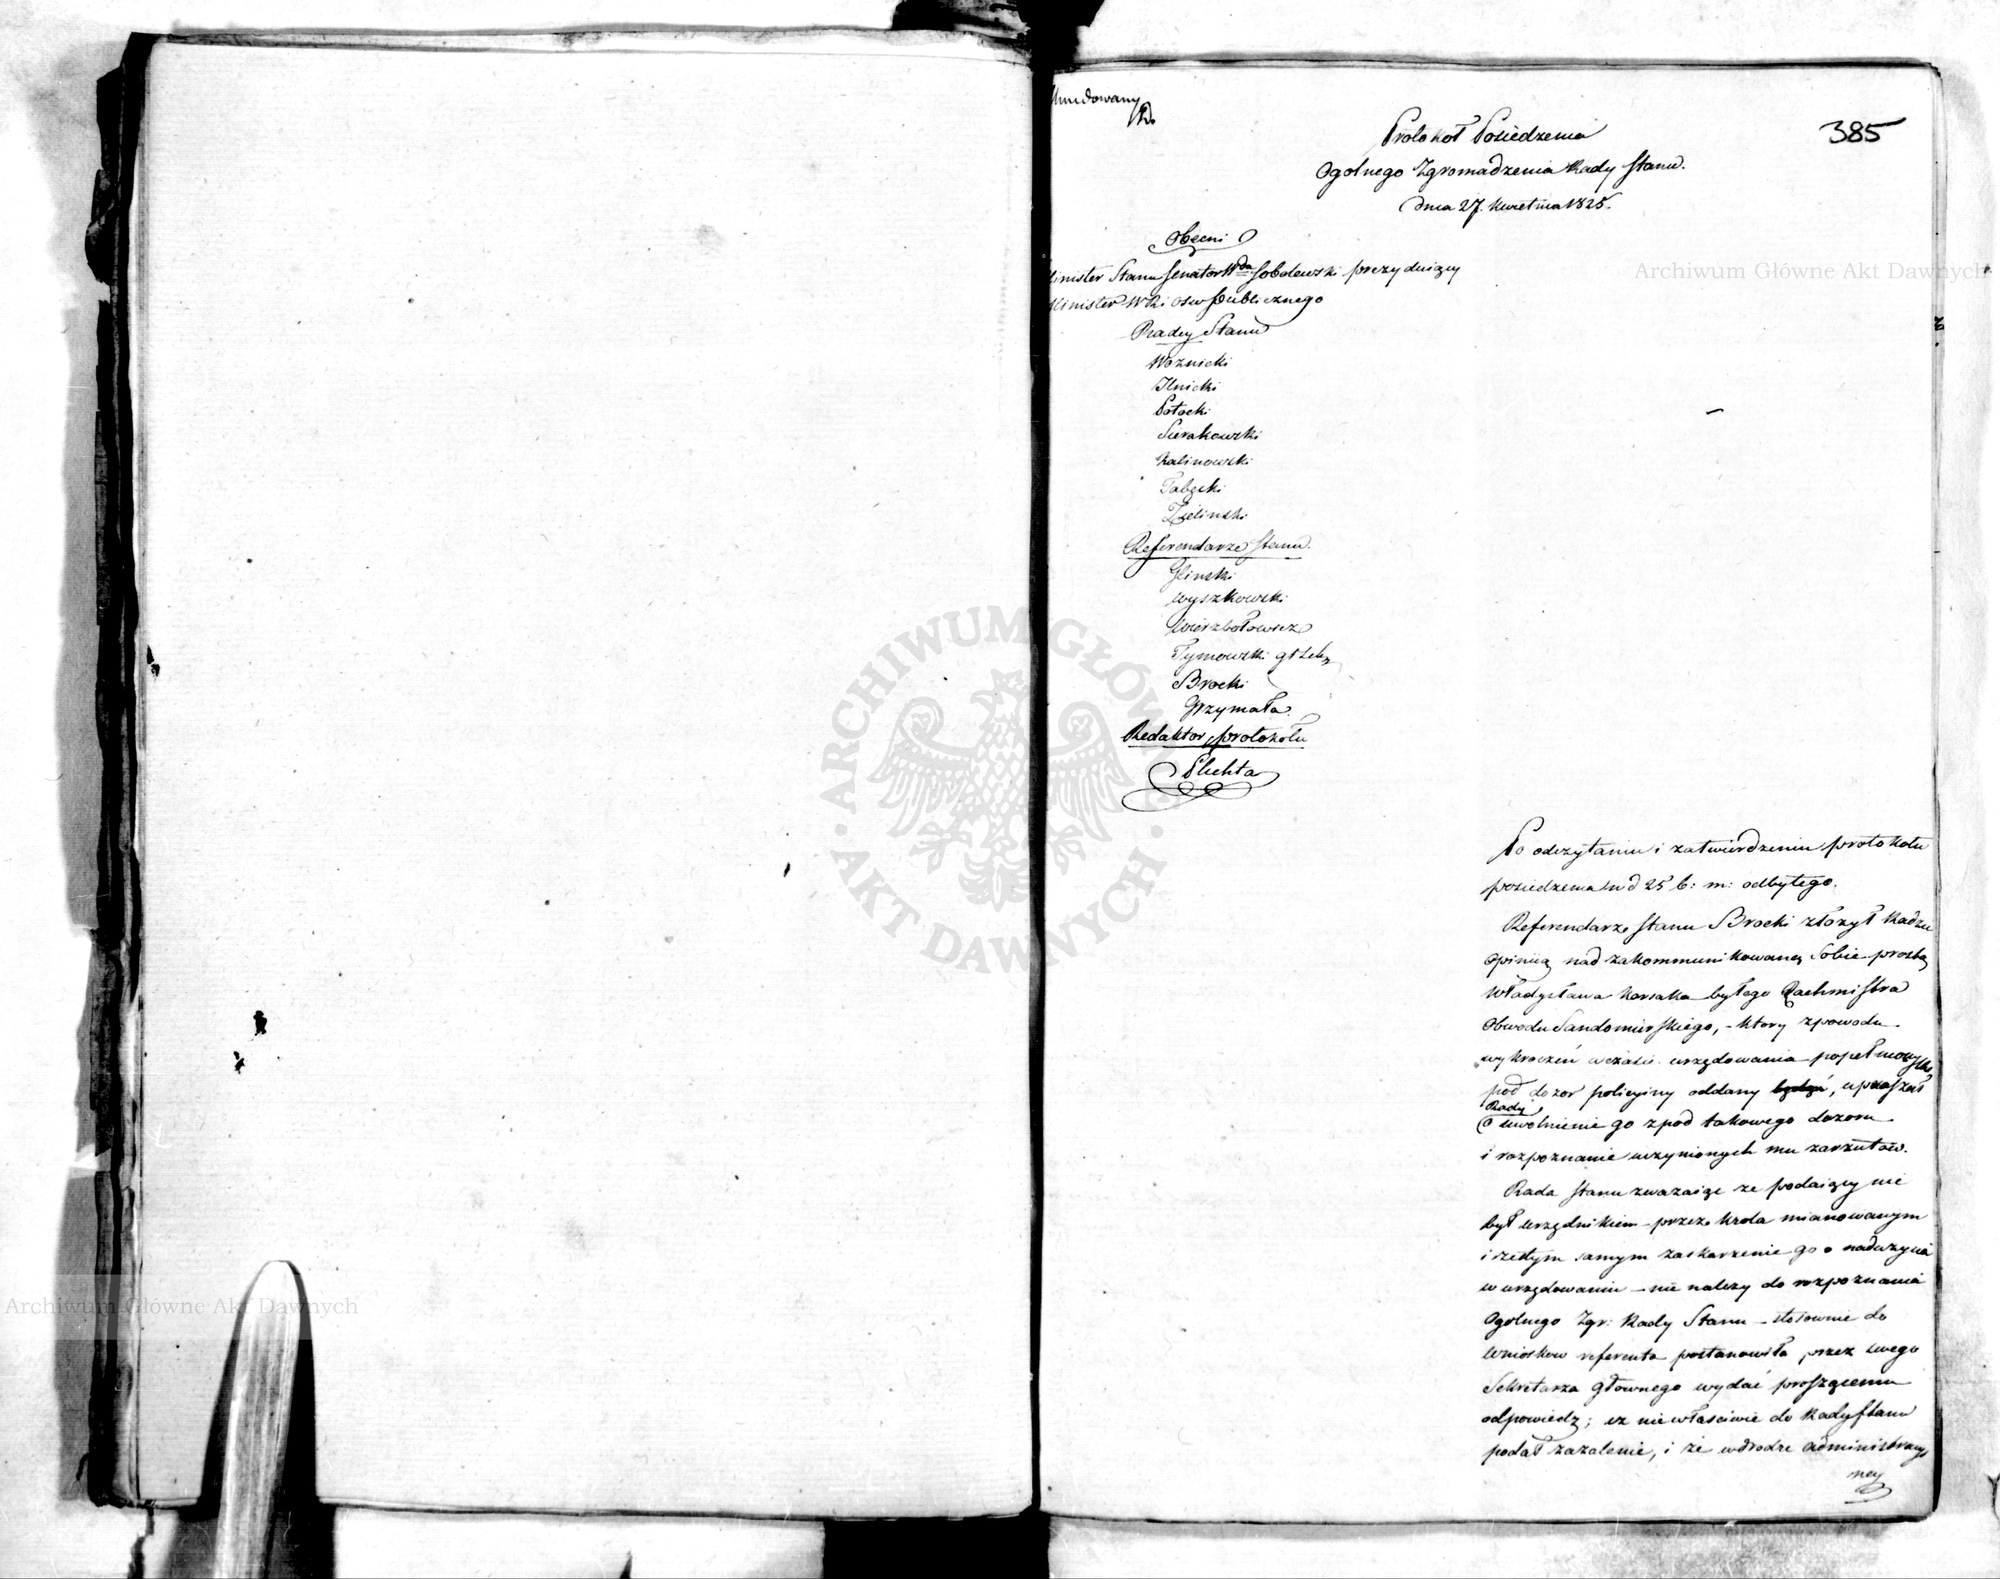 385
Protokoł Posiedzenia
Ogolnego Zgromadzenia Rady Stanu.
dnia 27. Kwietnia 1825.
Obecni
Minister Stanu Senator Wda Sobolewski prezyduiący
Minister Wki Publicznego
Radcy Stanu
Woznicki
Ilnicki
Potocki
Sierakowski
Kalinowski
Tabęcki
Zieliński
Referendarze Stanu.
Gliński
Wyszkowski
Wierzbołowicz
Tymowski
Brocki
Grzymała.
Redaktor protokołu
Plichta
Po odczytaniu i zatwierdzeniu protokołu
posiedzenia w d 25 b: m: odbytego.
Referendarz Stanu Brocki złożył Radzie
Opinią nad zakommunikowaną Sobie prozbą
Władysława Korsaka byłego Rachmistrza
Obwodu Sandomierskiego, - ktory zpowodu
wykroczeń wczasie urzędowania popełnionych
pod dozor policyiny oddany będąc, upraszał
Rady
o uwolnienie go zpod takowego dozoru
i rozpoznanie uczynionych mu zarzutów.
Rada Stanu zwazaiąc ze podaiący nie
był urzędnikiem przez Krola mianowanym
i zetym samym zaskarzenie go o naduzycia
w urzędowaniu - nie nalezy do rozpoznania
Ogolnego Zgr: Rady Stanu - stosownie do
wnioskow referenta postanowiła przez swego
Sekretarza głownego wydać proszącemu
odpowiedz; iz niewłasciwie do Rady Stanu
podał zazalenie, i że wdrodze administracy
ney
Archiwum Główne Akt Dawnych
Archiwum Główne Akt Dawnych
ARCHIWUM GŁÓWNE · AKT DAWNYCH ·